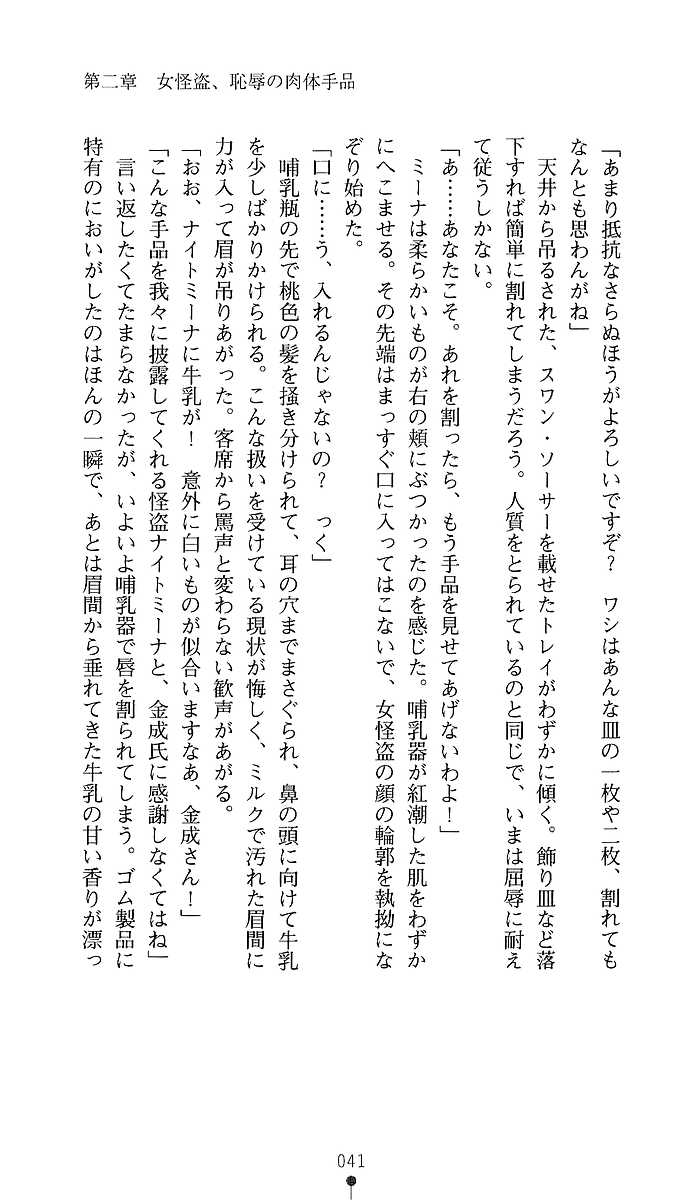 第二章　女怪盗、恥辱の肉体手品
「あまり抵抗なさらぬほうがよろしいですぞ？　ワシはあんな皿の一枚や二枚、割れても
なんとも思わんがね」
　天井から吊るされた、スワン・ソーサーを載せたトレイがわずかに傾く。飾り皿など落
下すれば簡単に割れてしまうだろう。人質をとられているのと同じで、いまは屈辱に耐え
て従うしかない。
「あ……あなたこそ。あれを割ったら、もう手品を見せてあげないわよ！」
　ミーナは柔らかいものが右の頬にぶつかったのを感じた。哺乳器が紅潮した肌をわずか
にへこませる。その先端はまっすぐ口に入ってはこないで、女怪盗の顔の輪郭を執拗にな
ぞり始めた。
「口に……う、入れるんじゃないの？　っく」
　哺乳瓶の先で桃色の髪を掻き分けられて、耳の穴までまさぐられ、鼻の頭に向けて牛乳
を少しばかりかけられる。こんな扱いを受けている現状が悔しく、ミルクで汚れた眉間に
力が入って眉が吊りあがった。客席から罵声と変わらない歓声があがる。
「おお、ナイトミーナに牛乳が！　意外に白いものが似合いますなあ、金成さん！」
「こんな手品を我々に披露してくれる怪盗ナイトミーナと、金成氏に感謝しなくてはね」
　言い返したくてたまらなかったが、いよいよ哺乳器で唇を割られてしまう。ゴム製品に
特有のにおいがしたのはほんの一瞬で、あとは眉間から垂れてきた牛乳の甘い香りが漂っ
041